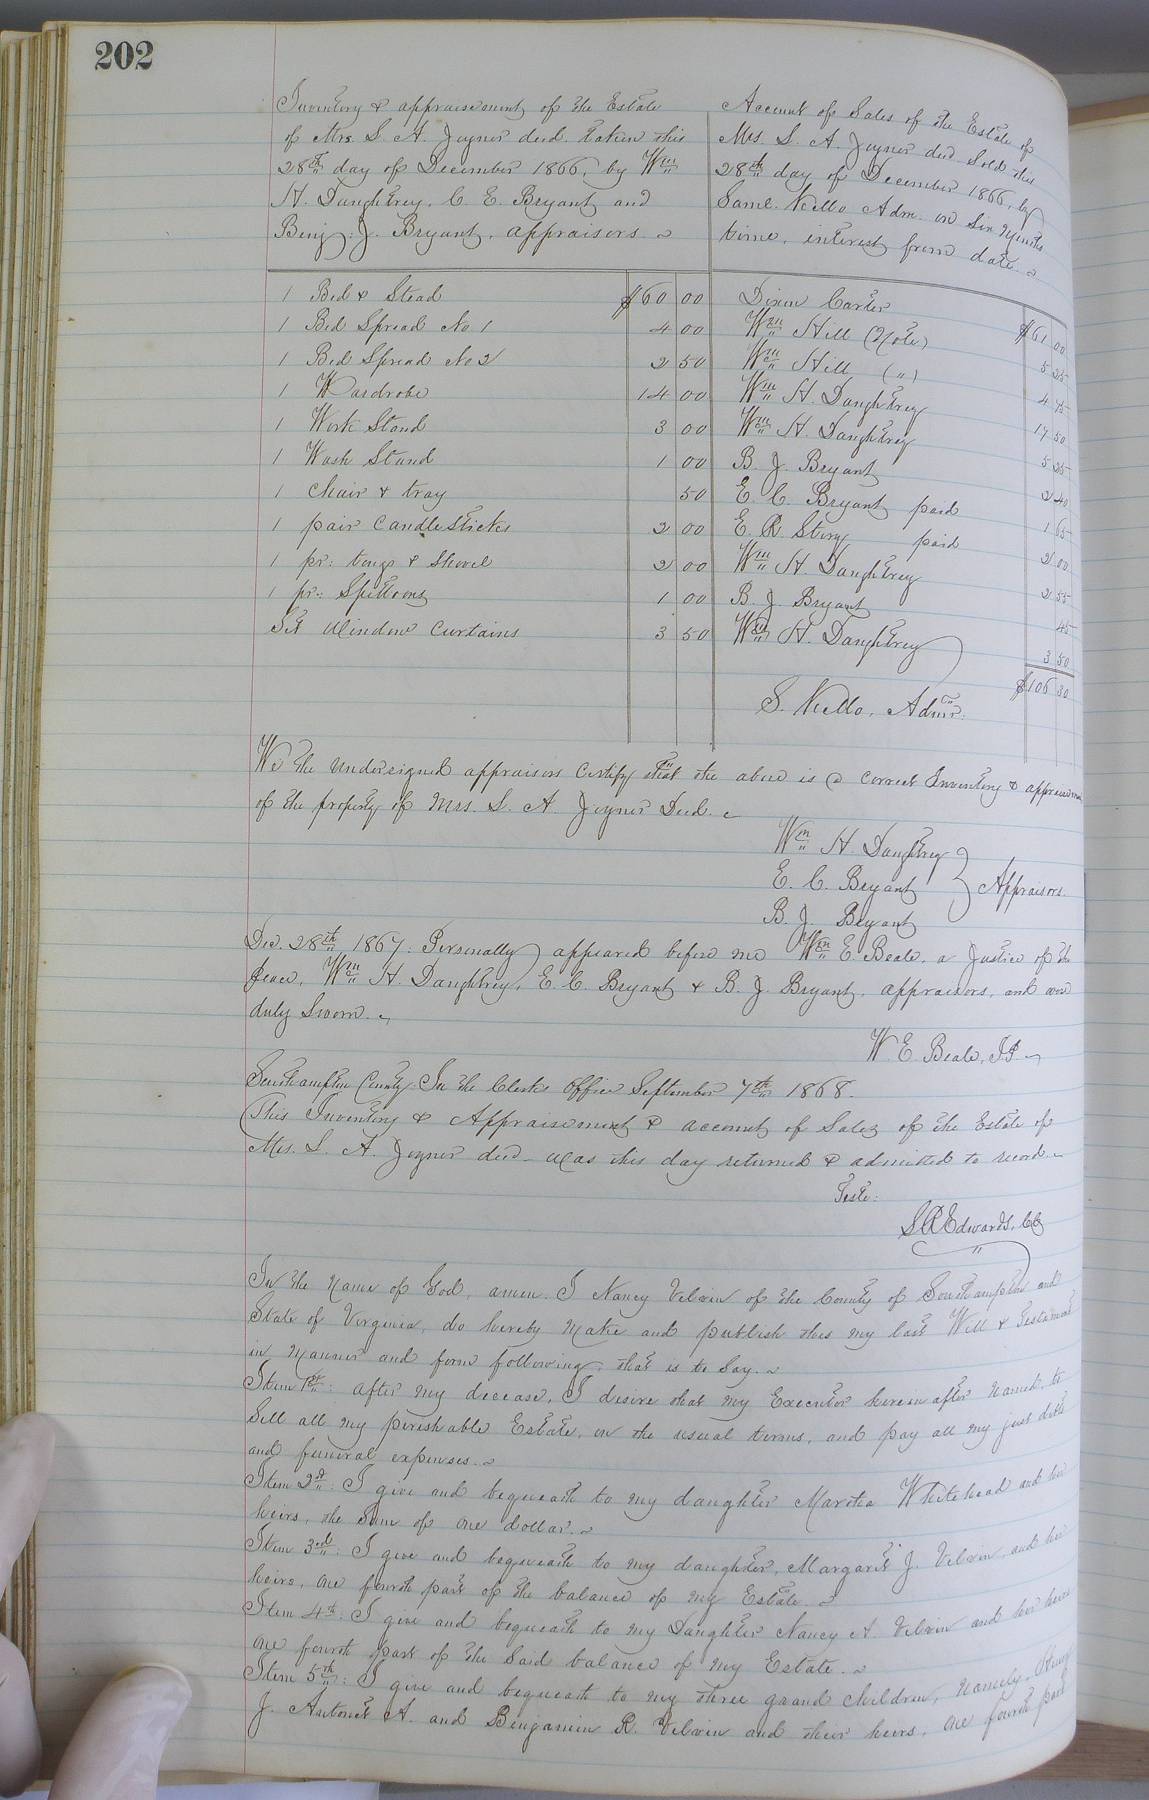 202
Inventory & appraisement of the Estate
of Mrs. S. A. Joyner decd. taken this
28th day of December 1866, by Wm
H. Daughtrey, C. E. Bryant and
Benj: J. Bryant, appraisors.
Account of Sales of the Estate of
Mrs. S. A. Joyner decd. Sold this
28th day of December 1866, by
Saml. Kello Adm. on Six Months
time, interest from date.
1 Bed & Stead $60 00 Dixon Carter $61 00
1 Bed Spread No 1 4 00 Wm Hill (Note) 5 25
1 Bed Spread No 2 2 50 Wm Hill (") 4 75
1 Wardrobe 14 00 Wm H. Daughtrey 17 50
1 Work Stand 3 00 Wm H. Daughtrey 5 25
1 Wash Stand 1 00 B. J. Bryant 2 40
1 Chair & tray 50 E. C. Bryant paid 1 65
1 pair Candle Sticks 2 00 E. R. Story paid 2 00
1 pr: tongs & Shovel 2 00 Wm H. Daughtrey 2 55
1 pr: Spittoons 1 00 B. J. Bryant 45
Set Window Curtains 3 50 Wm H. Daughtrey 3 50
$106 30
S. Kello, Admr.
We the undersigned appraisors Certify that the above is a correct Inventory & appraisment
of the property of Mrs. S. A. Joyner Decd.
Wm H. Daughtrey
E. C. Bryant } Appraisors.
B. J. Bryant
Dec. 28th 1867: Personally appeared before me Wm E. Beale, a Justice of the
peace, Wm H. Daughtrey, E. C. Bryant & B. J. Bryant, appraisors, and were
duly Sworn.
W. E. Beale, J.P.
Southampton County. In the Clerks Office September 7th 1868.
This Inventory & Appraisement & account of Sales of the Estate of
Mrs. S. A. Joyner decd. was this day returned & admitted to record.
Teste:
Edwards, CC
In the Name of God, amen. I Nancy Velvin of the County of Southampton and
State of Virginia, do hereby make and publish this my last Will & Testament
in manner and form following, that is to Say.
Item 1st: After my decease, I desire that my Executor herein after Named, to
Sell all my perishable Estate, on the usual terms, and pay all my just debts
and funeral expenses.
Item 2d: I give and bequeath to my daughter Martha Whitehead and her
heirs, the Sum of one dollar.
Item 3rd: I give and bequeath to my daughter, Margaret J. Velvin, and her
heirs, one fourth part of the balance of my Estate.
Item 4th: I give and bequeath to my Daughter Nancy A. Velvin and her heirs
one fourth part of the Said balance of my Estate.
Item 5th: I give and bequeath to my three grand Children, Namely, Henry
J. Antonet A. and Benjamin R. Velvin and their heirs, one fourth part